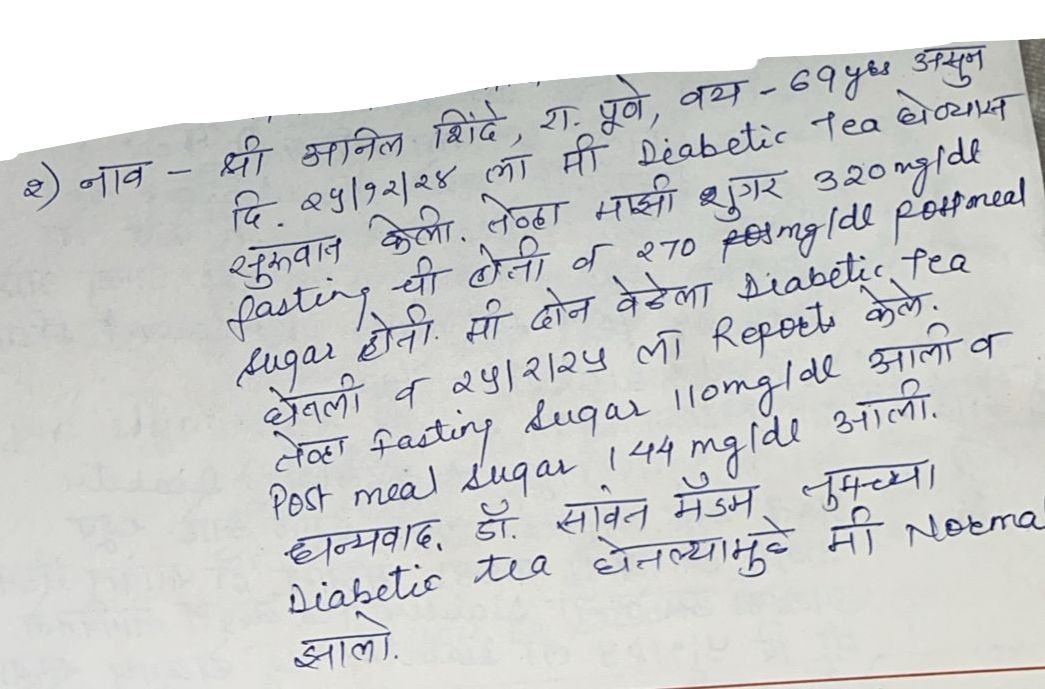 २) नाव - श्री अनिल शिंदे, रा. पूणे, वय - 69 yrs असुन
दि. २५/१२/२४ ला मी Diabetic Tea घेण्यास
सुरूवात केली. तेव्हा माझी शुगर 320 mg/dl
fasting ची होती व २70 mg/dl Post meal
sugar होती. मी दोन वेळेला Diabetic Tea
घेतली व २५/२/२५ ला Reports केले.
तेव्हा fasting Sugar 110mg/dl आली व
Post meal sugar 144 mg/dl आली.
धन्यवाद. डॉ. सावंत मॅडम तुमच्या
Diabetic tea घेतल्यामुळे मी Norma
झालो.